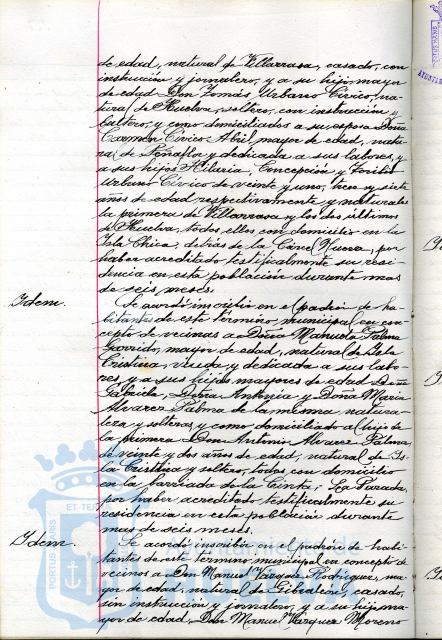 de edad, natural de Villarrasa, casado, con
instrucción y jornalero, y a su hijo mayor
de edad Don Tomás Urbano Cívico, na-
tural de Huelva, soltero, con instrucción y
soltero, y como domiciliados a su esposa Doña
Carmen Cívico Abril, mayor de edad, natu-
ral de Peñaflor y dedicada a sus labores, y
a sus hijos Hilaria, Concepción y Toribio
Urbano Cívico de veinte y uno, trece y siete
años de edad respectivamente y naturales
la primera de Villarrasa y los dos últimos
de Huelva, todos ellos con domicilio en la
Isla Chica, detrás de la Cárcel Nueva, por
haber acreditado testificalmente su resi-
dencia en esta población durante mas
de seis meses.
Idem.
Se acordó inscribir en el padrón de ha-
bitantes de este término municipal en con-
cepto de vecinas a Doña Manuela Palma
Garrido, mayor de edad, natural de Isla
Cristina, viuda y dedicada a sus labo-
res, y a sus hijos mayores de edad Doña
Gabriela, Doña Antonia y Doña María
Alvarez Palma de la misma natura-
leza y solteras, y como domiciliado al hijo de
la primera Don Antonio Alvarez Palma,
de veinte y dos años de edad, natural de Is-
la Cristina y soltero, todos con domicilio
en la barriada de la Cinta, La Parada,
por haber acreditado testificalmente su
residencia en esta población durante
mas de seis meses.
Idem.
Se acordó inscribir en el padrón de habi-
tantes de este término municipal en concepto de
vecinos a Don Manuel Vázquez Rodríguez, ma-
yor de edad, natural de Gibraleón, casado,
sin instrucción y jornalero, y a su hijo ma-
yor de edad, Don Manuel Vázquez Moreno
PORTUS
ET TE
Ayuntamiento de